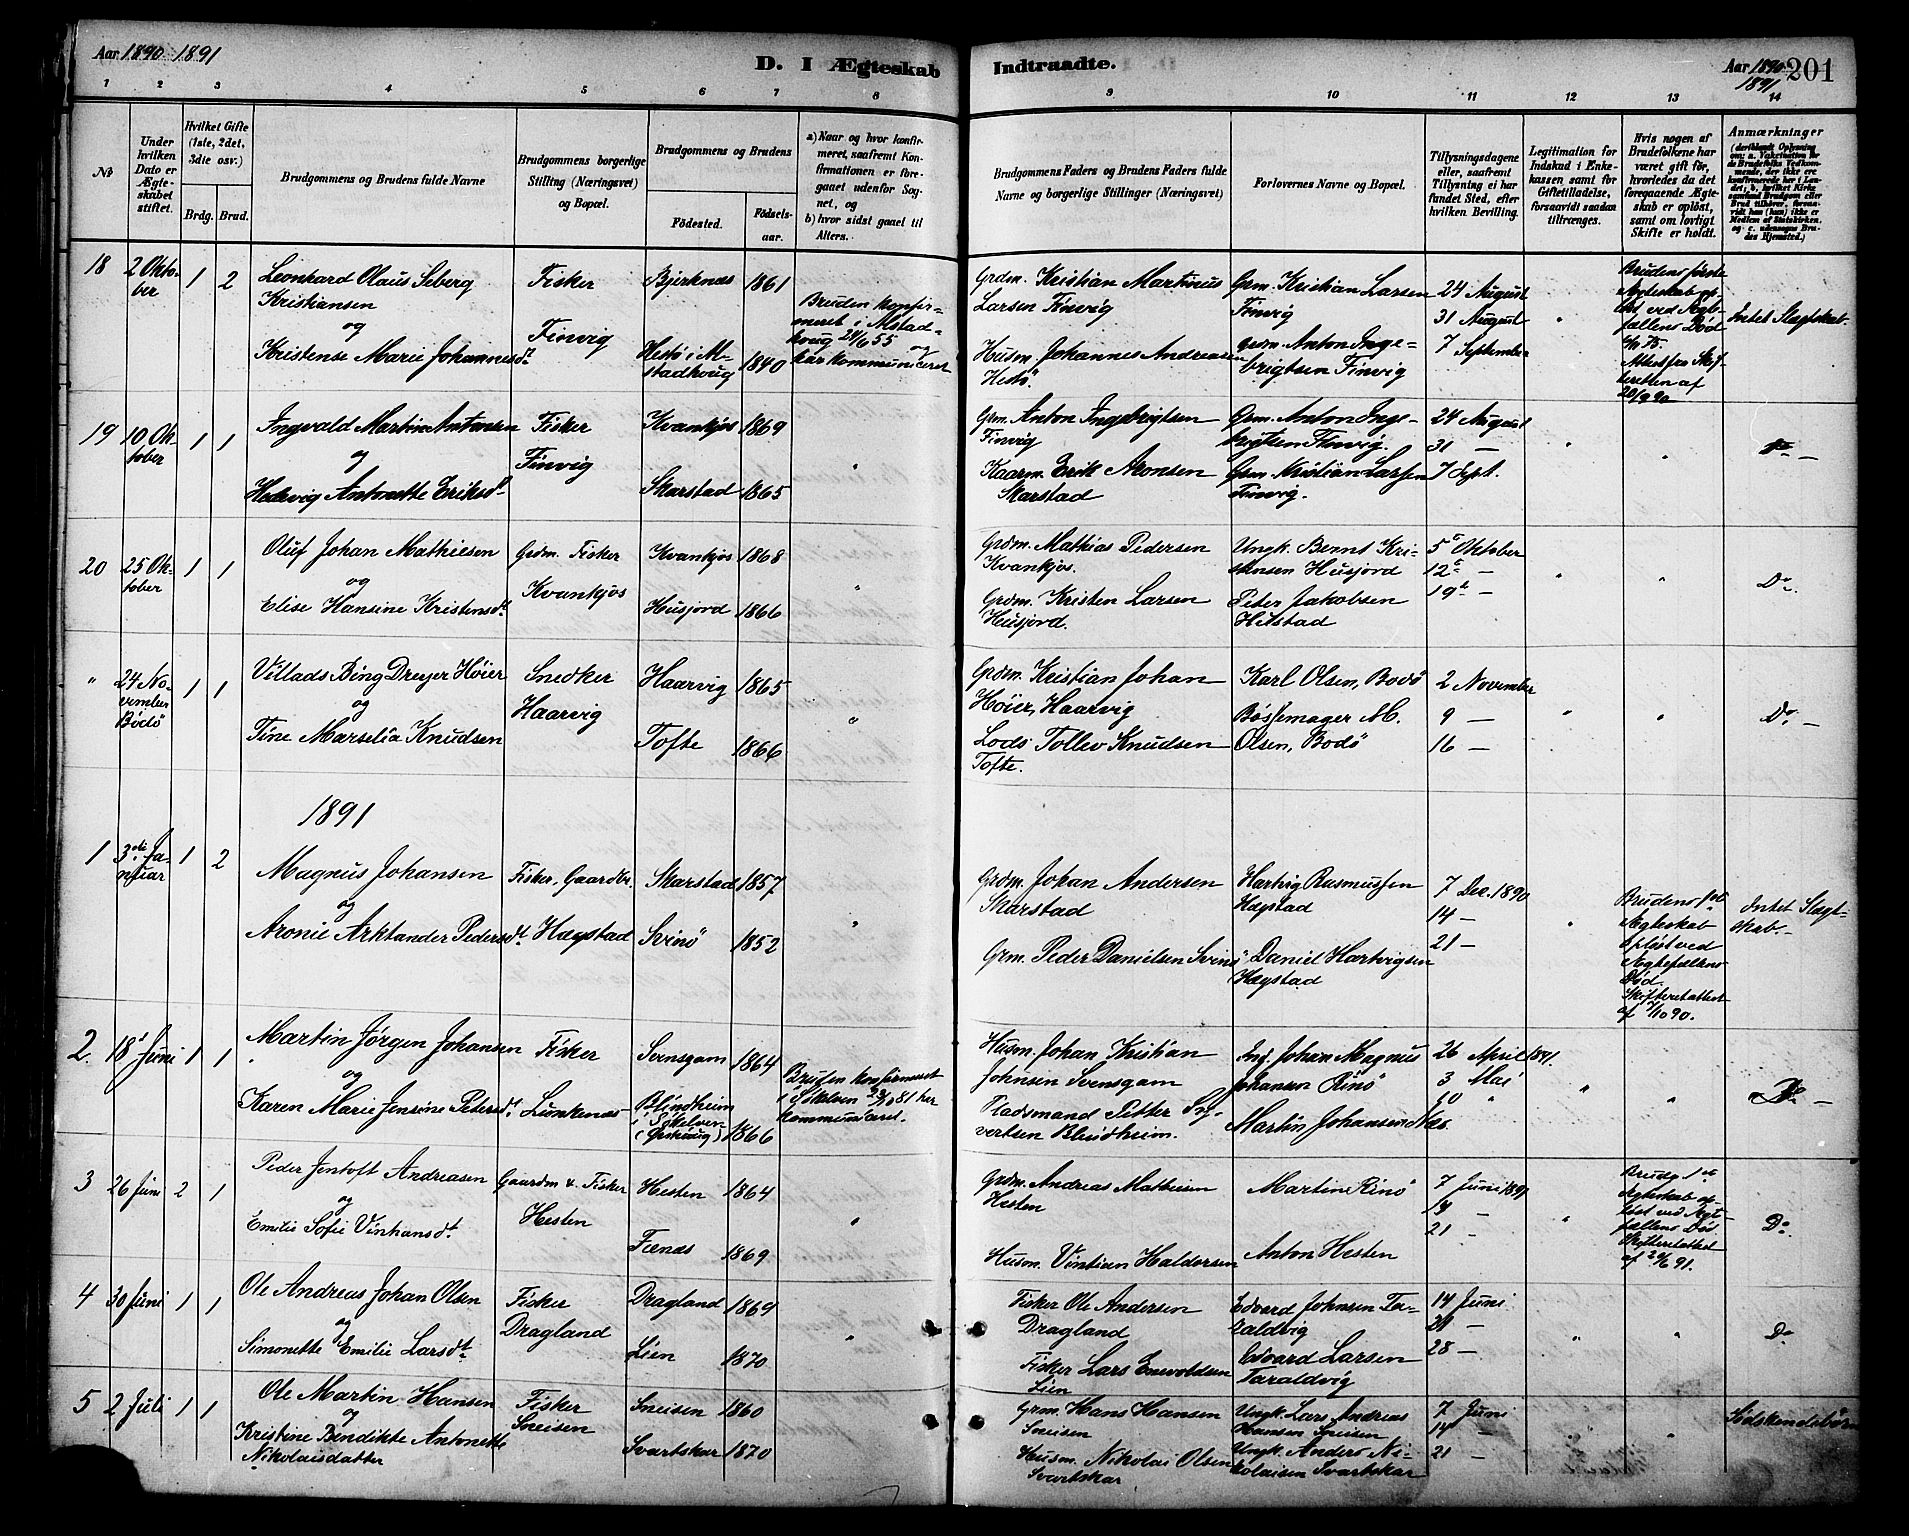 Aar 1890 1891
D. I Ægteskab Indtraadte.
Aar 1890 1891
201
1 2 3 4 5 6 7 8 9 10 11 12 13 14
No
Under hvilken Dato er Ægteskabet stiftet.
Hvilket Gifte (1ste, 2det, 3die osv.)
Brdg. Brud.
Brudgommens og Brudens fulde Navne
Brudgommens borgerlige Stilling (Næringsvei) og Bopæl.
Brudgommens og Brudens
Fødested. Fødselsaar.
a) Naar og hvor konfirmeret, saafremt Konfirmationen er foregaaet udenfor Sognet, og b) hvor sidst gaaet til Alters.
Brudgommens Faders og Brudens Faders fulde Navne og borgerlige Stillinger (Næringsvei)
Forlovernes Navne og Bopæl.
Tillysningsdagene eller, saafremt Tillysning ei har fundet Sted, efter hvilken Bevilling.
Legitimation for Indskud i Enkekassen samt for Giftetilladelse, forsaavidt saadan tiltrænges.
Hvis nogen af Brudefolkene har været gift før, hvorledes da det foregaaende Ægteskab er opløst, samt om lovligt Skifte er holdt.
Anmærkninger
18 2 Oktober 1 2
Leonhard Olaus Seberg Kristiansen
og
Kristense Marie Johannesdt.
Fisker
Finvig
Bjerknæs 1861
Hestø i Alstadhoug 1840
Bruden konfirmeret i Alstadhoug 24/6 55 og har kommuniceret
Grdm. Kristian Martinus Larsen Finvig
Husm. Johannes Andreasen Hestø
Grm. Kristian Larsen Finvig
Grdm. Anton Ingebrigtsen Finvig
24 August
31 August
7 September
"
Brudens første Ægteskab opløst ved Ægtefællens Død
Attest fra Skifteretten af 20/9 90
Intet Slægtskab.
19 10 Oktober 1 1
Ingvald Martin Antonsen
og
Hedevig Antonette Eriksdt.
Fisker
Finvig
Kvankjøs 1869
Skarstad 1865
"
Grm. Anton Ingebrigtsen Finvig
Kaarm. Erik Aronsen Skarstad
Grm. Anton Ingebrigtsen Finvig.
Grm. Kristian Larsen Finvig.
24 August
31 —
7 Sept.
" "
Do —
20 25 Oktober 1 1
Oluf Johan Mathiesen
og
Elise Hansine Kristensdt.
Grdm. Fisker
Kvankjøs
Kvankjøs 1868
Husjord 1866
"
Grdm. Mathias Pedersen Kvankjøs.
Grdm. Kristen Larsen Husjord.
Ungk. Bernt Kristensen Husjord
Peter Jakobsen Helstad
5te Oktober
12te —
19de —
" "
Do.
" 24 November Bodø 1 1
Villads Bing Dreyer Høier
og
Tine Marselia Knudsen
Snedker
Haarvig
Haarvig 1865
Tofte 1866
"
Grdm. Kristian Johan Høier, Haarvig
Lods Tollev Knudsen Tofte.
Karl Olsen, Bodø
Bøssemager M. Olsen, Bodø
2 November
9 —
16 —
" "
Do. —
1891
1 3die Januar 1 2
Magnus Johansen
og
Aronie Arktander Pedersdt.
Fisker, Gaardbr.
Hægstad
Skarstad 1857
Svinø 1852
"
Grdm. Johan Andersen Skarstad
Grm. Peder Danielsen Svinø
Hartvig Rasmussen Hægstad
Daniel Hartvigsen Hægstad
7 Dec. 1890
14 —
21 —
"
Brudens 1ste Ægteskab opløst ved Ægtefællens Død. Skifteretattest af 7/10 90.
Intet Slægtskab. —
2. 18de Juni 1 1
Martin Jørgen Johansen
og
Karen Marie Jensine Pedersdt.
Fisker
Lumkenæs
Svensgam 1864
Blindheim i Økelven (Ørskoug) 1866
Bruden konfirmeret i 81 her kommuniceret.
Husm. Johan Kristian Johnsen Svensgam
Pladsmand Petter Syvertsen Blindheim.
Ing. Johan Magnus Johansen Rinø
Martin Johansen Næs.
26 April 1891.
3 Mai
10 "
" "
Do —
3 26 Juni 2 1
Peder Jentoft Andreasen
og
Emilie Sofie Vinhansdt.
Gaardm & Fisker
Hesten
Hesten 1864
Fienæs 1869
"
Grdm. Andreas Mathisen Hesten
Husm. Vintian Haldorsen
Martin Rinø
Anton Hesten
7 Juni 1891
14 —
21 —
"
Brudg. 1ste Ægteskab opløst ved Ægtefællens Død Skifteretattest af 91.
Do
4 30 Juni 1 1
Ole Andreas Johan Olsen
og
Simonette Emilie Larsdt.
Fisker
Dragland
Dragland 1869
Lien 1870
"
Fisker Ole Andersen Dragland
Fisker Lars Enevoldsen Lien
Edvard Johnsen Taraldvig
Edvard Larsen Taraldvig
14 Juni
21 —
28 —
" "
Do
5 2 Juli 1 1
Ole Martin Hansen
og
Kristine Bendikte Antonette Nikolaisdatter
Fisker
Sneisen
Sneisen 1860
Svartskar 1870
Grm. Hans Hansen Sneisen
Husm. Nikolai Olsen Svartskar
Ungk. Lars Andreas Hansen Sneisen
Ungk. Anders Nikolaisen Svartskar
7 Juni
14 —
21 —
"
Sødskendebørn